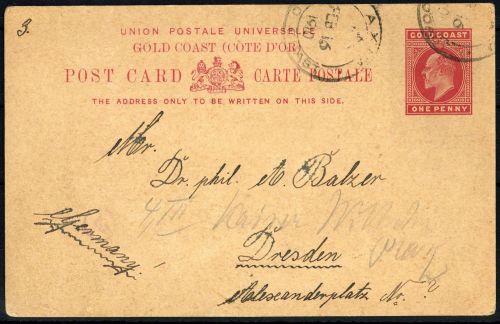 3.
UNION POSTALE UNIVERSELLE
GOLD COAST (CÔTE D'OR)
POST CARD CARTE POSTALE
THE ADDRESS ONLY TO BE WRITTEN ON THIS SIDE.
GOLD COAST
ONE PENNY
FEB 15
Mr.
Dr. phil. A. Balzer
Kaiser
Germany!
Dresden
Alexanderplatz No. ?